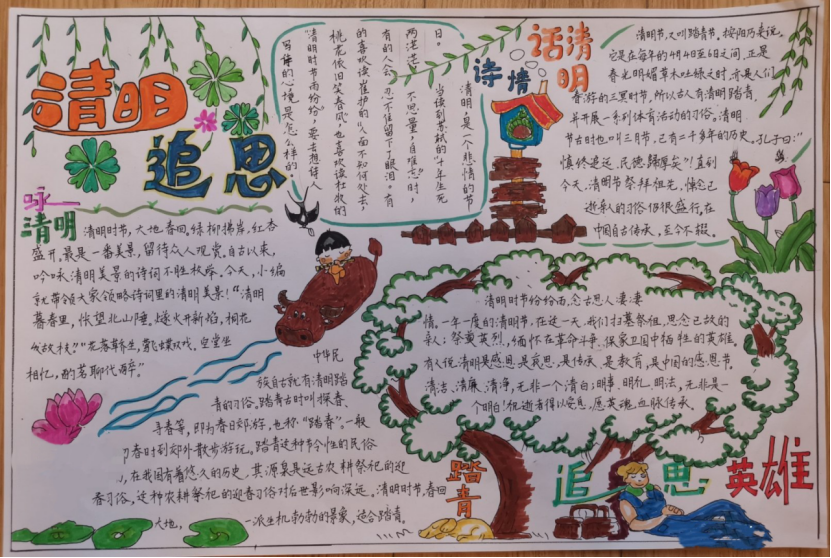 清明
追思
咏
清明
清明时节,大地春回,绿柳拂岸,红杏
盛开,最是一番美景,留待众人观赏。自古以来,
吟咏清明美景的诗词不胜枚举。今天,小编
就带领大家领略诗词里的清明美景!“清明
暮春里,怅望北山陲。燧火开新焰,桐花
发故枝。”
相忆,酌茗聊代醉。”
诗情
清明,是一个悲情的节
日。当读到苏轼的“十年生死
两茫茫,不思量,自难忘”时,
有的人会忍不住留下了眼泪。有
的喜欢读崔护的“人面不知何处去,
桃花依旧笑春风”,也喜欢读杜牧的
“清明时节雨纷纷”,要去想诗人
写作的心境是怎么样的。
话清明
清明节,又叫踏青节。按阳历来说,
它是在每年的4月4日至6日之间,正是
春光明媚草木吐绿之时,亦是人们
春游的三冥时节,所以古人有清明踏青,
并开展一系列体育活动的习俗。清明
节古时也叫三月节,已有二千多年的历史。孔子曰:“
慎终追远,民德归厚矣”!直到
今天,清明节祭拜祖先,悼念已
逝亲人的习俗仍很盛行。在
中国自古传承,至今不辍。
清明时节纷纷雨,念古思人凄凄
情。一年一度的清明节,在这一天,我们扫墓祭祖,思念已故的
亲人;祭奠英烈,缅怀在革命斗争、保家卫国中牺牲的英雄。
有人说清明是感恩,是哀思,是传承,是教育,是中国的感恩节。
清洁、清廉、清净,无非一个清白;明事、明礼、明法,无非是一
个明白!祝逝者得以安息,愿英魂血脉传承。
中华民
族自古就有清明踏
青的习俗。踏青古时叫探春、
寻春等,即为春日郊游,也称“踏春”。一般
春时到郊外散步游玩。踏青这种节令性的民俗
,在我国有着悠久的历史,其源泉是远古农耕祭祀的迎
春习俗,这种农耕祭祀的迎春习俗对后世影响深远。清明时节,春回
大地,一派生机勃勃的景象,适合踏青。
踏青
追思英雄